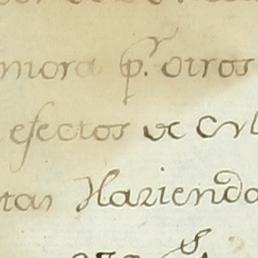 mora p.r otros
efectos de cul
tas Hazienda